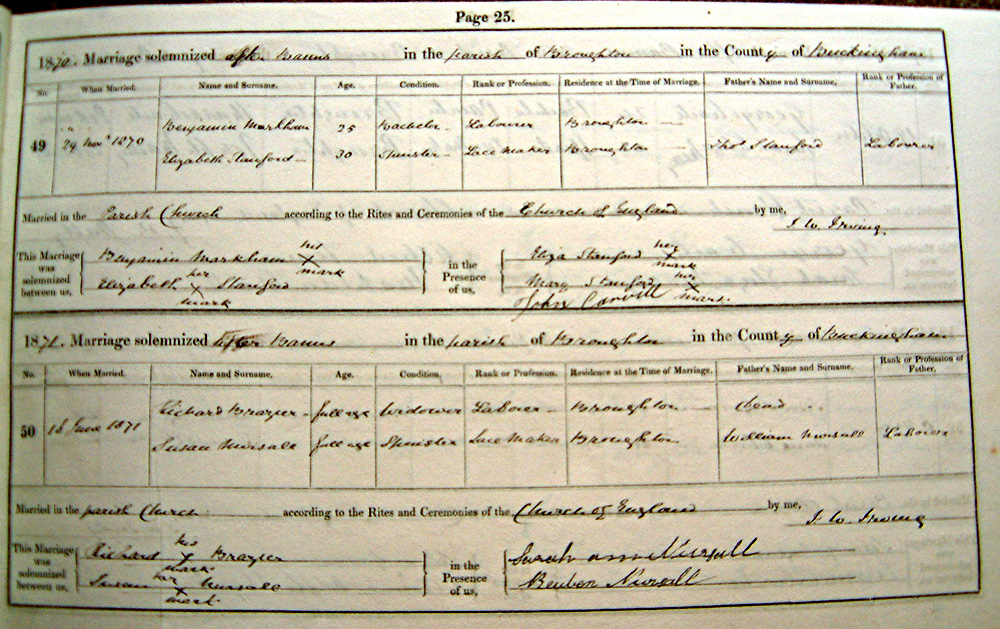 Page 25.
1870. Marriage solemnized after Banns in the parish of Broughton in the County of Buckingham
No. When Married. Name and Surname. Age. Condition. Rank or Profession. Residence at the Time of Marriage. Father's Name and Surname. Rank or Profession of Father.
Benjamin Markham 25 Bachelor Labourer Broughton —
49 29 Novr 1870
Elizabeth Stanford — 30 Spinster Lace Maker Broughton — Thos Stanford Labourer
Married in the Parish Church according to the Rites and Ceremonies of the Church of England by me, I. W. Irving
This Marriage was solemnized between us,
Benjamin Markham his X mark
Elizabeth her X mark Stanford
in the Presence of us,
Eliza Stanford her X mark
Mary Stanford her X mark
John Carvill
1871. Marriage solemnized after Banns in the parish of Broughton in the County of Buckingham
No. When Married. Name and Surname. Age. Condition. Rank or Profession. Residence at the Time of Marriage. Father's Name and Surname. Rank or Profession of Father.
Richard Brazier — full age Widower Laborer — Broughton — dead
50 16 June 1871
Susan Nursall full age Spinster Lace Maker Broughton William Nursall Laborer
Married in the parish Church according to the Rites and Ceremonies of the Church of England by me, I. W. Irving
This Marriage was solemnized between us,
Richard his X mark Brazier
Susan her X mark Nursall
in the Presence of us,
Sarah ann Nursall
Reuben Nursall